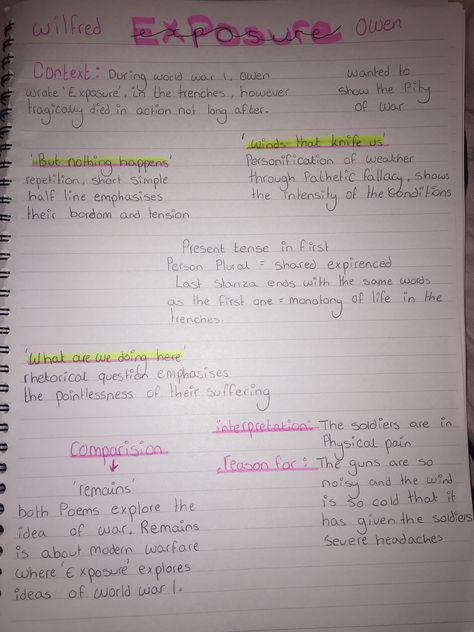 Wilfred Exposure Owen
Context: During world war 1, Owen
wrote 'Exposure', in the trenches, however
tragically died in action not long after.
wanted to
show the Pity
of war
'But nothing happens'
repetition, short simple
half line emphasises
their bordom and tension
'winds that knife us'
Personification of weather
through Pathetic fallacy, shows
the intensity of the conditions
Present tense in first
Person Plural = shared expirenced
Last stanza ends with the same words
as the first one = monotony of life in the
trenches.
'What are we doing here'
rhetorical question emphasises
the pointlessness of their suffering
Comparision
↓
'remains'
both Poems explore the
idea of war. Remains
is about modern warfare
where 'Exposure' explores
ideas of world war 1.
interpretation: The soldiers are in
Physical pain
reason for: The guns are so
noisy and the wind
is so cold that it
has given the soldiers
severe headaches